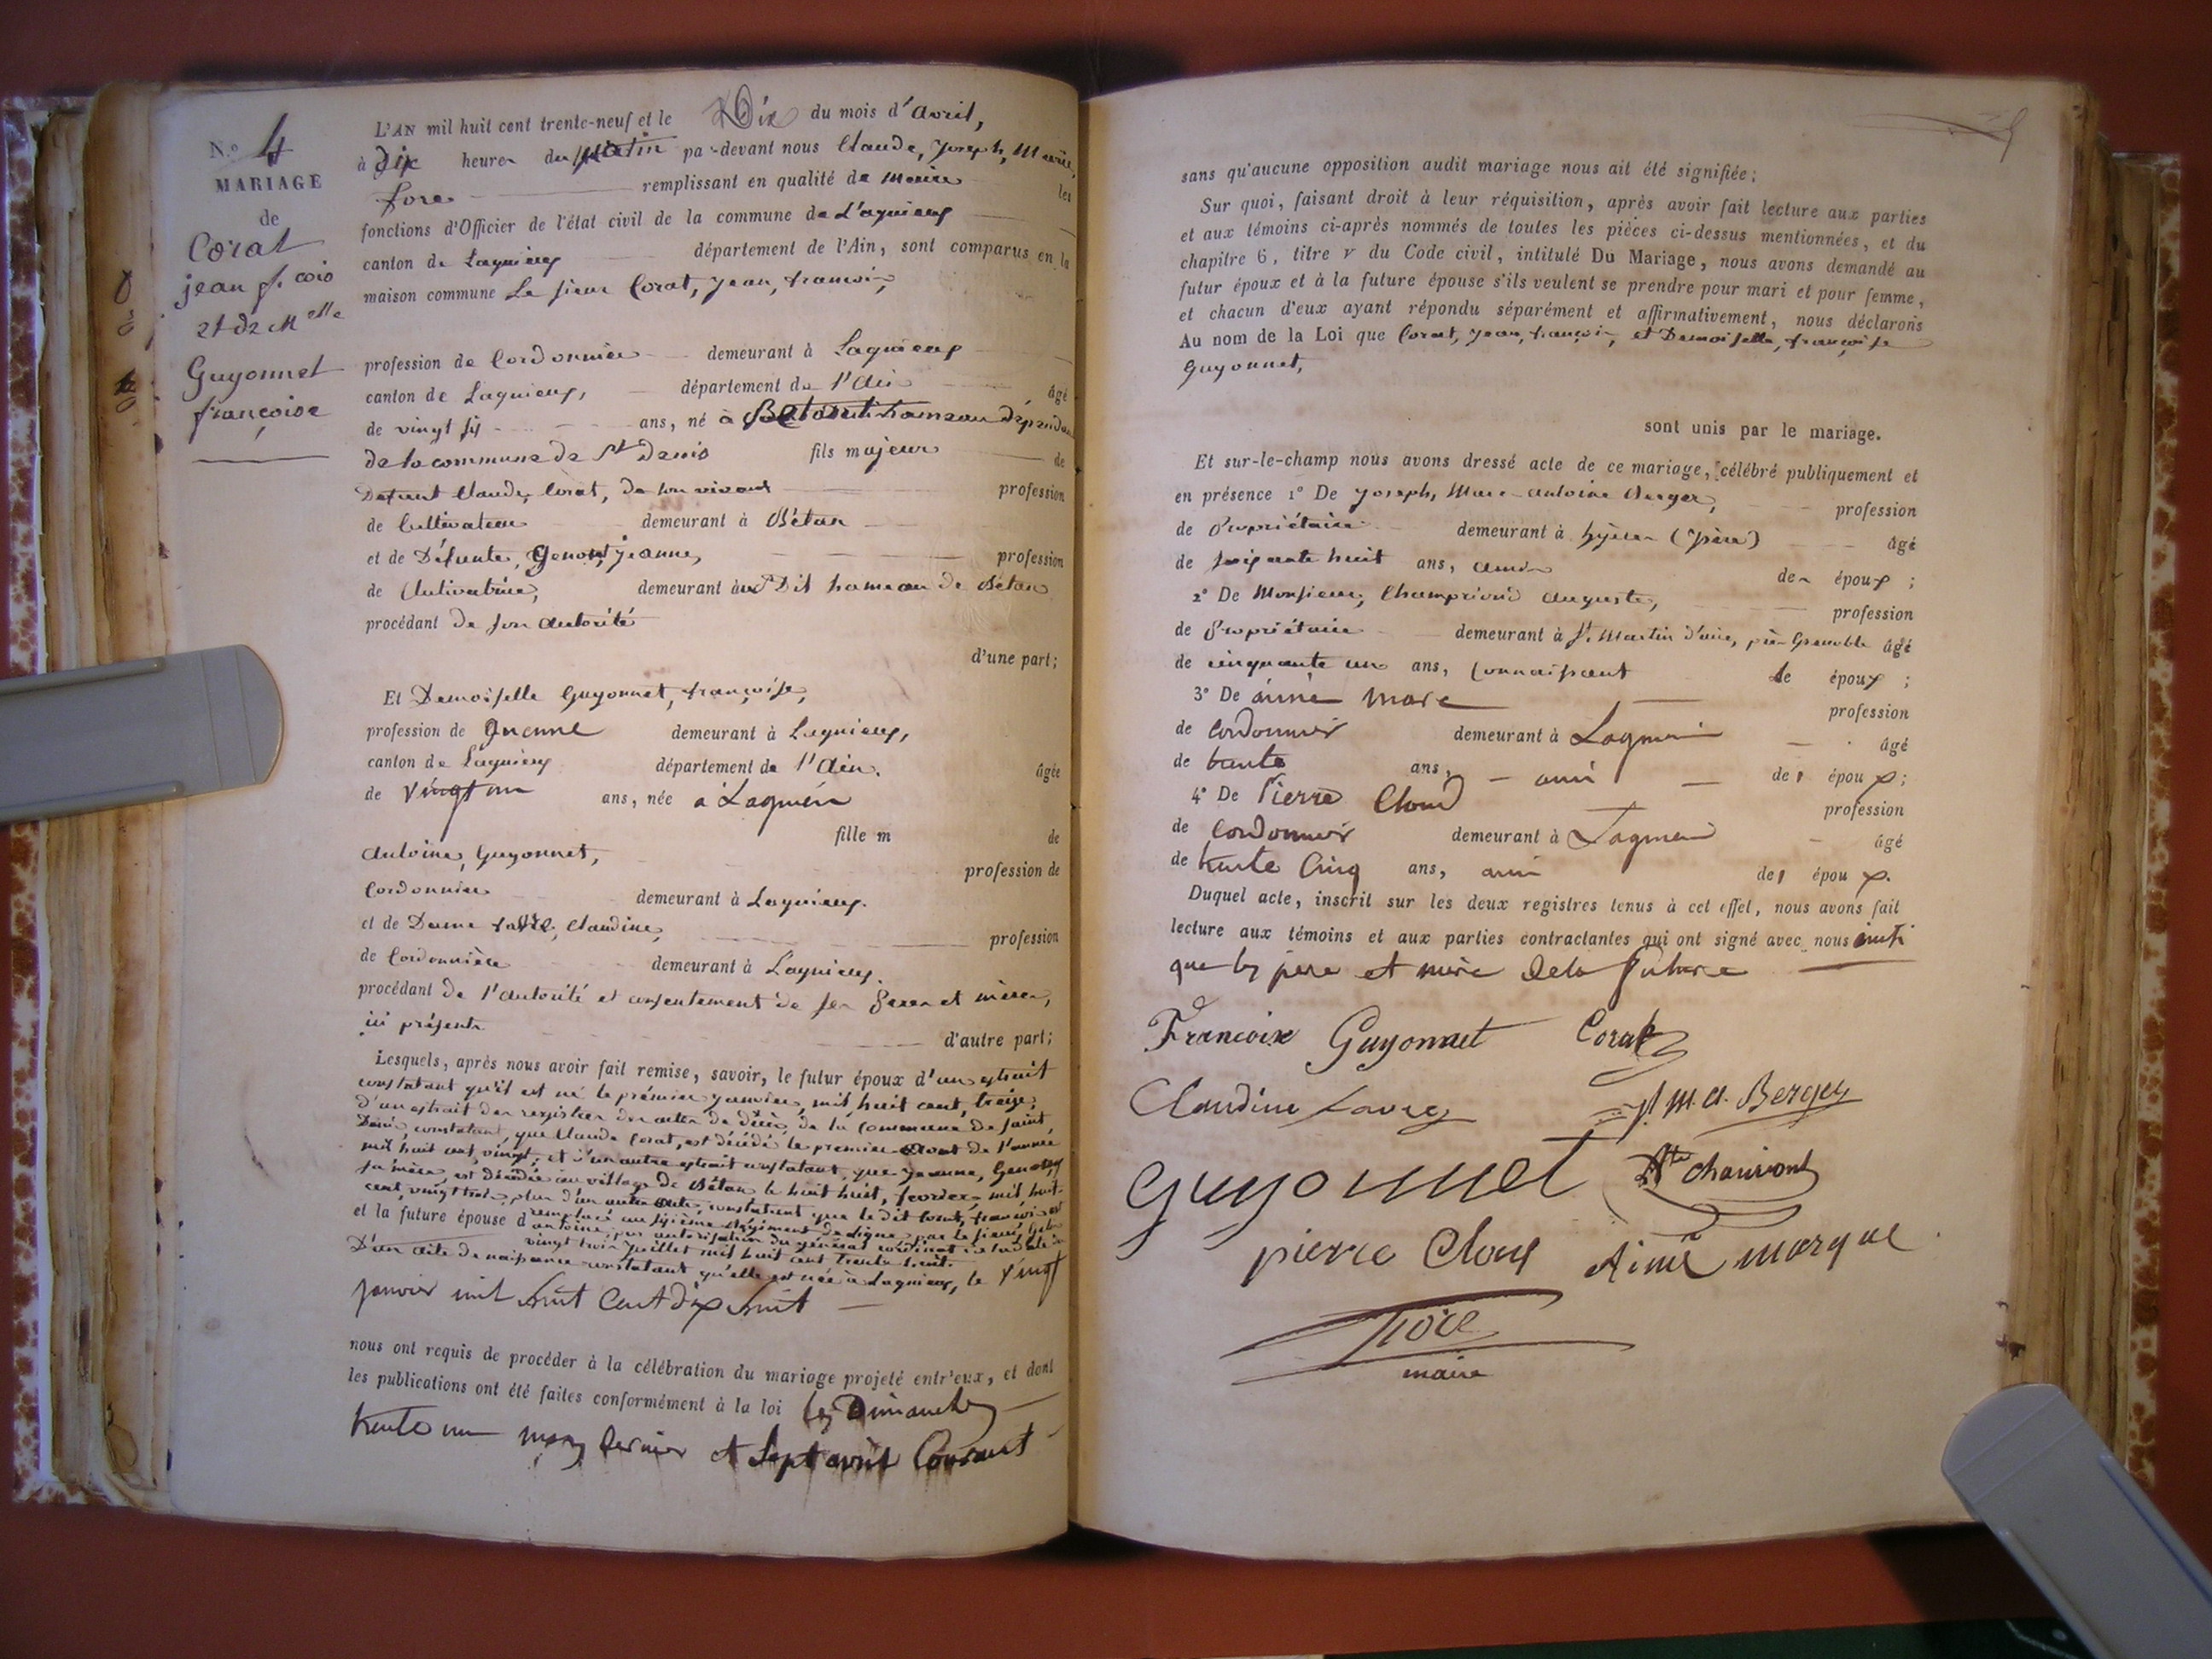 N.º 4
MARIAGE
de
Corat
jean f. cois
et de Melle
Guyonnet
françoise
L'AN mil huit cent trente-neuf et le Dix du mois d'avril,
à dix heures du matin par-devant nous Claude, Joseph, Marie,
fore remplissant en qualité de maire les
fonctions d'Officier de l'état civil de la commune de Lagnieux
canton de Lagnieux département de l'Ain, sont comparus en la
maison commune Le sieur Corat, Jean, françois,
profession de Cordonnier demeurant à Lagnieux
canton de Lagnieux, département de l'Ain âgé
de vingt six ans, né à hameau dépendant
de la commune de St Denis fils majeur de
Défunt Claude, Corat, de son vivant profession
de Cultivateur demeurant à Bétan
et de Défunte, Genost, jeanne, profession
de Cultivatrice, demeurant au Dit hameau de Bétan
procédant de son autorité
d'une part;
Et Demoiselle Guyonnet, françoise,
profession de demeurant à Lagnieux,
canton de Lagnieux département de l'Ain. âgée
de Vingt un ans, née à Lagnieu
fille m de
Antoine, Guyonnet, profession de
Cordonnier demeurant à Lagnieux.
et de Dame Claudine, profession
de Cordonnière demeurant à Lagnieux.
procédant de l'autorité et consentement de ses Père et mère,
ici présents d'autre part;
Lesquels, après nous avoir fait remise, savoir, le futur époux d'un extrait
constatant qu'il est né le premier janvier, mil huit cent, treize,
d'un extrait des registres des actes de décès de la Commune de Saint
Denis, constatant, que Claude Corat, est décédé le premier Août de l'année
mil huit cent, vingt, et d'un autre extrait constatant, que Jeanne, Genost,
sa mère, est décédée au village de Bétan le huit février mil huit
cent, vingt trois, plus d'un autre acte, constatant que le dit Corat, françois est
remplacé au sixième Régiment de ligne, par le sieur
et la future épouse d antoine, par autorisation du général
vingt trois juillet mil huit cent trente huit.
D'un acte de naissance constatant qu'elle est née à Lagnieux, le Vingt
janvier mil huit Cent dix huit
nous ont requis de procéder à la célébration du mariage projeté entr'eux, et dont
les publications ont été faites conformément à la loi les Dimanches
trente un mars dernier et Sept avril Courant
sans qu'aucune opposition audit mariage nous ait été signifiée;
Sur quoi, faisant droit à leur réquisition, après avoir fait lecture aux parties
et aux témoins ci-après nommés de toutes les pièces ci-dessus mentionnées, et du
chapitre 6, titre V du Code civil, intitulé Du Mariage, nous avons demandé au
futur époux et à la future épouse s'ils veulent se prendre pour mari et pour femme,
et chacun d'eux ayant répondu séparément et affirmativement, nous déclarons
Au nom de la Loi que Corat, Jean, françois, et Demoiselle, françoise
Guyonnet,
sont unis par le mariage.
Et sur-le-champ nous avons dressé acte de ce mariage, célébré publiquement et
en présence 1º De Joseph, Marc-Antoine Berger, profession
de Propriétaire demeurant à âgé
de soixante huit ans, amis des époux;
2º De Monsieur, Champriond Auguste, profession
de Propriétaire demeurant à St. Martin près Grenoble âgé
de cinquante un ans, Connaissant de époux;
3º De aimé marc profession
de cordonnier demeurant à Lagnieu âgé
de trente ans, ami de époux;
4º De Pierre Cloud profession
de cordonnier demeurant à Lagnieu âgé
de trente Cinq ans, ami de époux.
Duquel acte, inscrit sur les deux registres tenus à cet effet, nous avons fait
lecture aux témoins et aux parties contractantes qui ont signé avec nous
que les pere et mère de la future
Francoise Guyonnet Corat
Claudine J. M. A. Berger
Guyonnet
pierre Cloud Aimé marque
maire